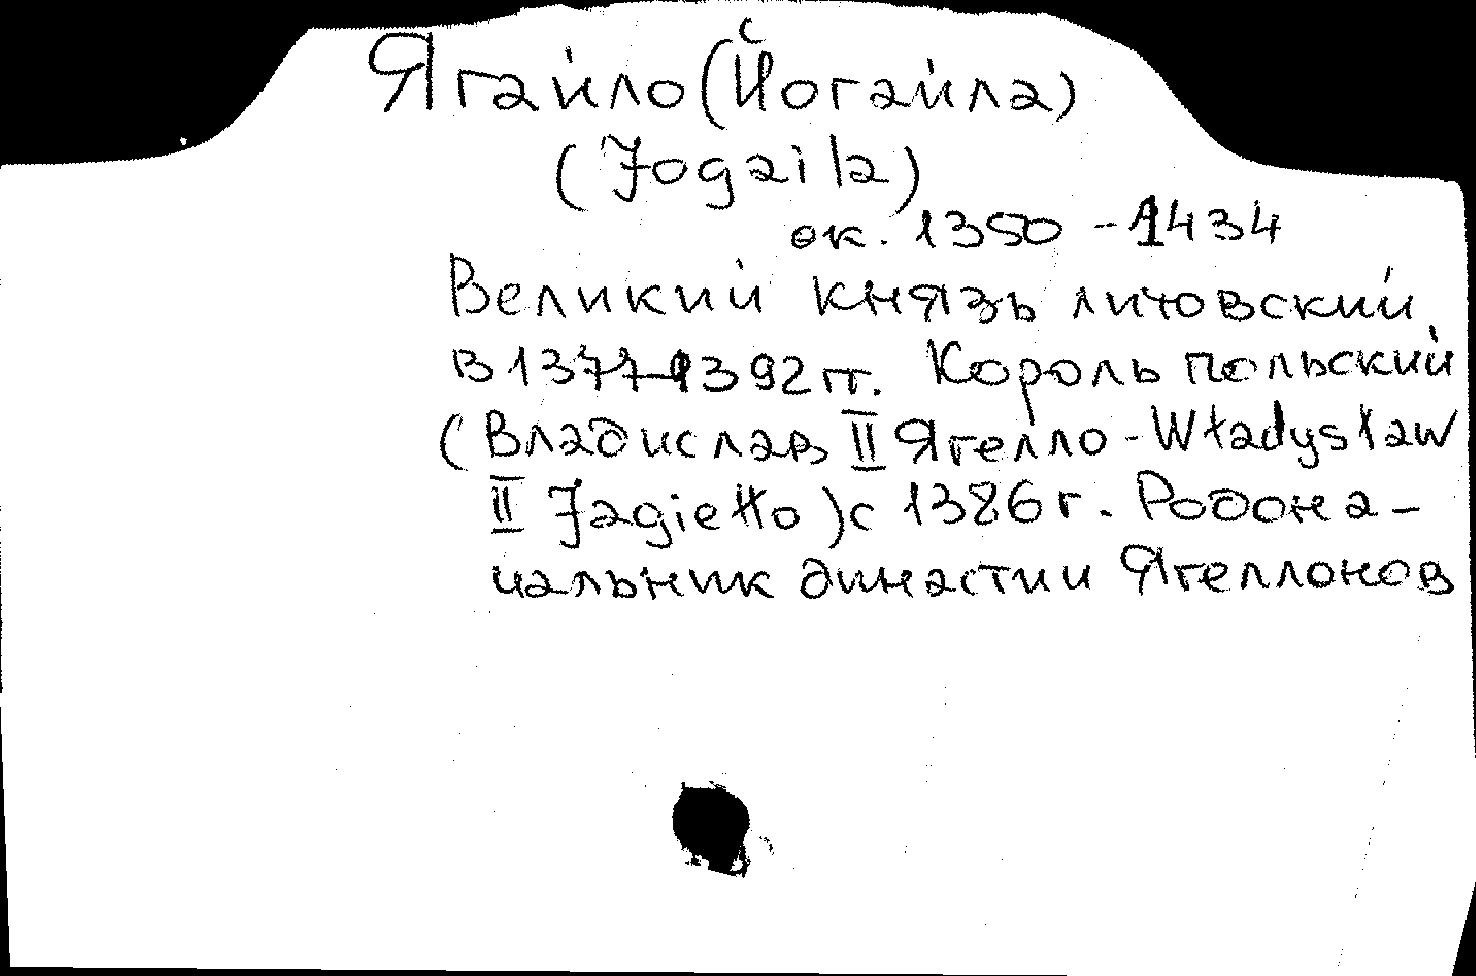 Ягайло (Йогайла)
(Jogaila)
ок. 1350 - 1434
Великий князь литовский
в 1377-1392 гг. Король польский
(Владислав II Ягелло - Władysław
II Jagiełło) с 1386 г. Родона-
чальник династии Ягеллонов